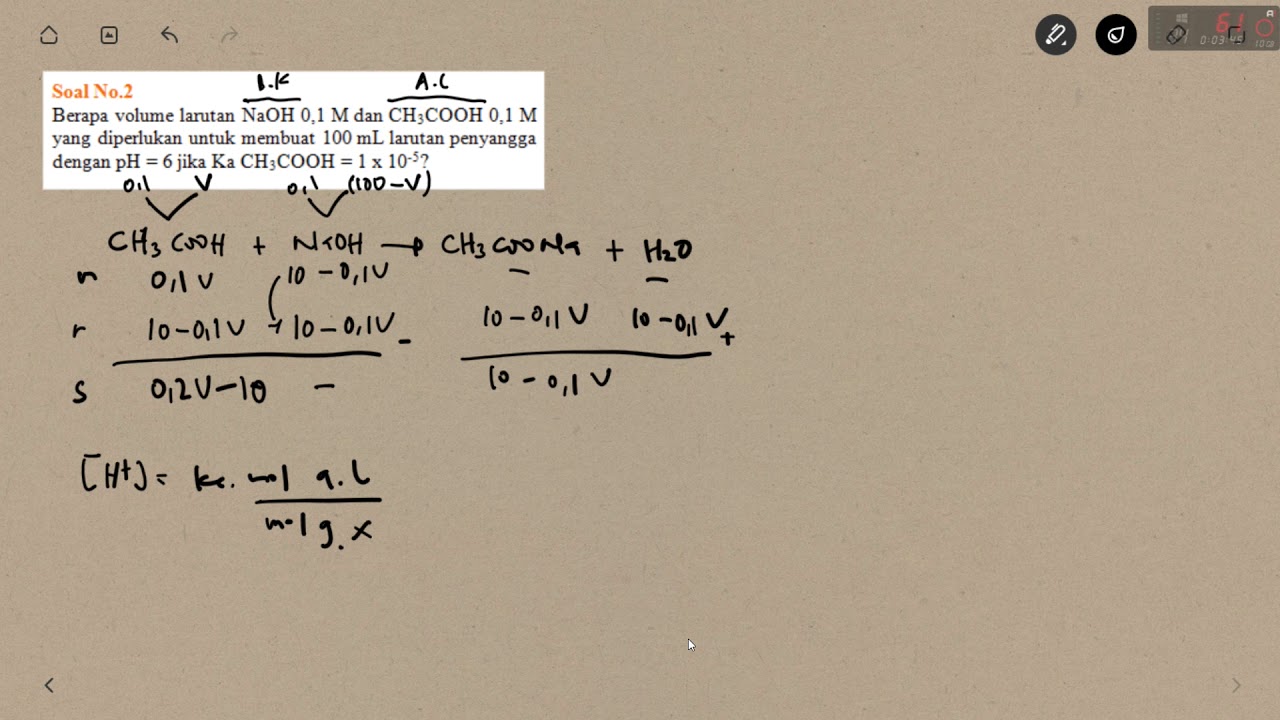 61
0:03:45
Soal No.2
B.K A.L
Berapa volume larutan NaOH 0,1 M dan CH3COOH 0,1 M
yang diperlukan untuk membuat 100 mL larutan penyangga
dengan pH = 6 jika Ka CH3COOH = 1 x 10-5?
0,1 V 0,1 (100-V)
CH3COOH + NaOH → CH3COONa + H2O
m 0,1 V 10 - 0,1 V - -
r 10 - 0,1 V 10 - 0,1 V - 10 - 0,1 V 10 - 0,1 V +
s 0,2V - 10 - 10 - 0,1 V
[H+] = ka. mol a.l
mol g. x